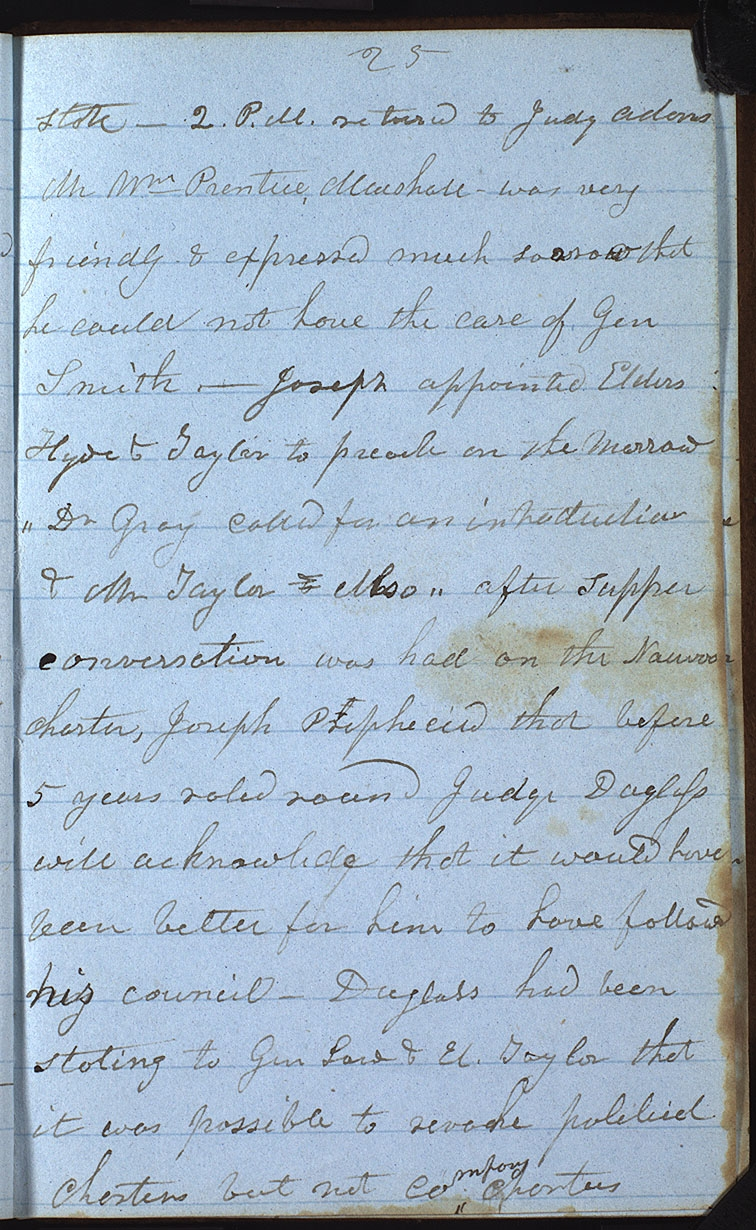 25
state — 2. P.M. returnd to Judg Adams
Mr Wm Prentice, Marshall - was very
friendly & expressed much sorrow that
he could not have the care of Gen
Smith. — Joseph appointed Elders
Hyde & Taylor to preach on the Morrow
" Dr Gray called for an introduction
& Mr Taylor Also " after supper
conversation was had on the Nauvoo
charter, Joseph Prophecied that before
5 years roled round Judge Duglass
will acknowledge that it would have
been better for him to have followd
his council — Duglass had been
stating to Gen Law & El. Taylor that
it was possible to revoke political
Charters but not company charters